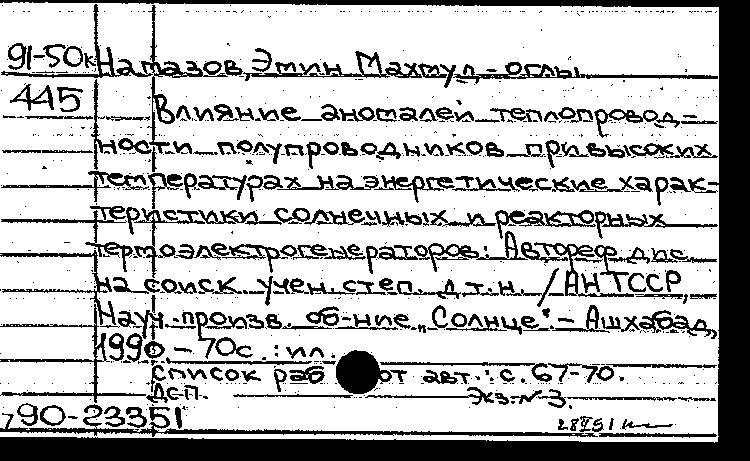 91-50к Намазов, Эмин Махмуд-оглы
445 Влияние аномалей теплопровод-
ности полупроводников при высоких
температурах на энергетические харак-
теристики солнечных и реакторных
термоэлектрогенераторов: Автореф дис
на соиск. учен. степ. д.т.н. / АН ТССР,
Науч.-произв. об-ние „Солнце“. – Ашхабад,
1990. – 70с. : ил.
Список раб от авт.: с. 67-70.
ДСП. Экз. N 3.
90-23351